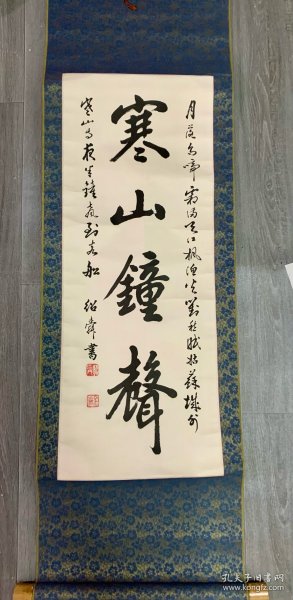 月落烏啼霜滿天江楓漁火對愁眠姑蘇城外
寒山鐘聲
寒山寺夜半鐘聲到客船 紹舜書
孔夫子旧书网
www.kongfz.com